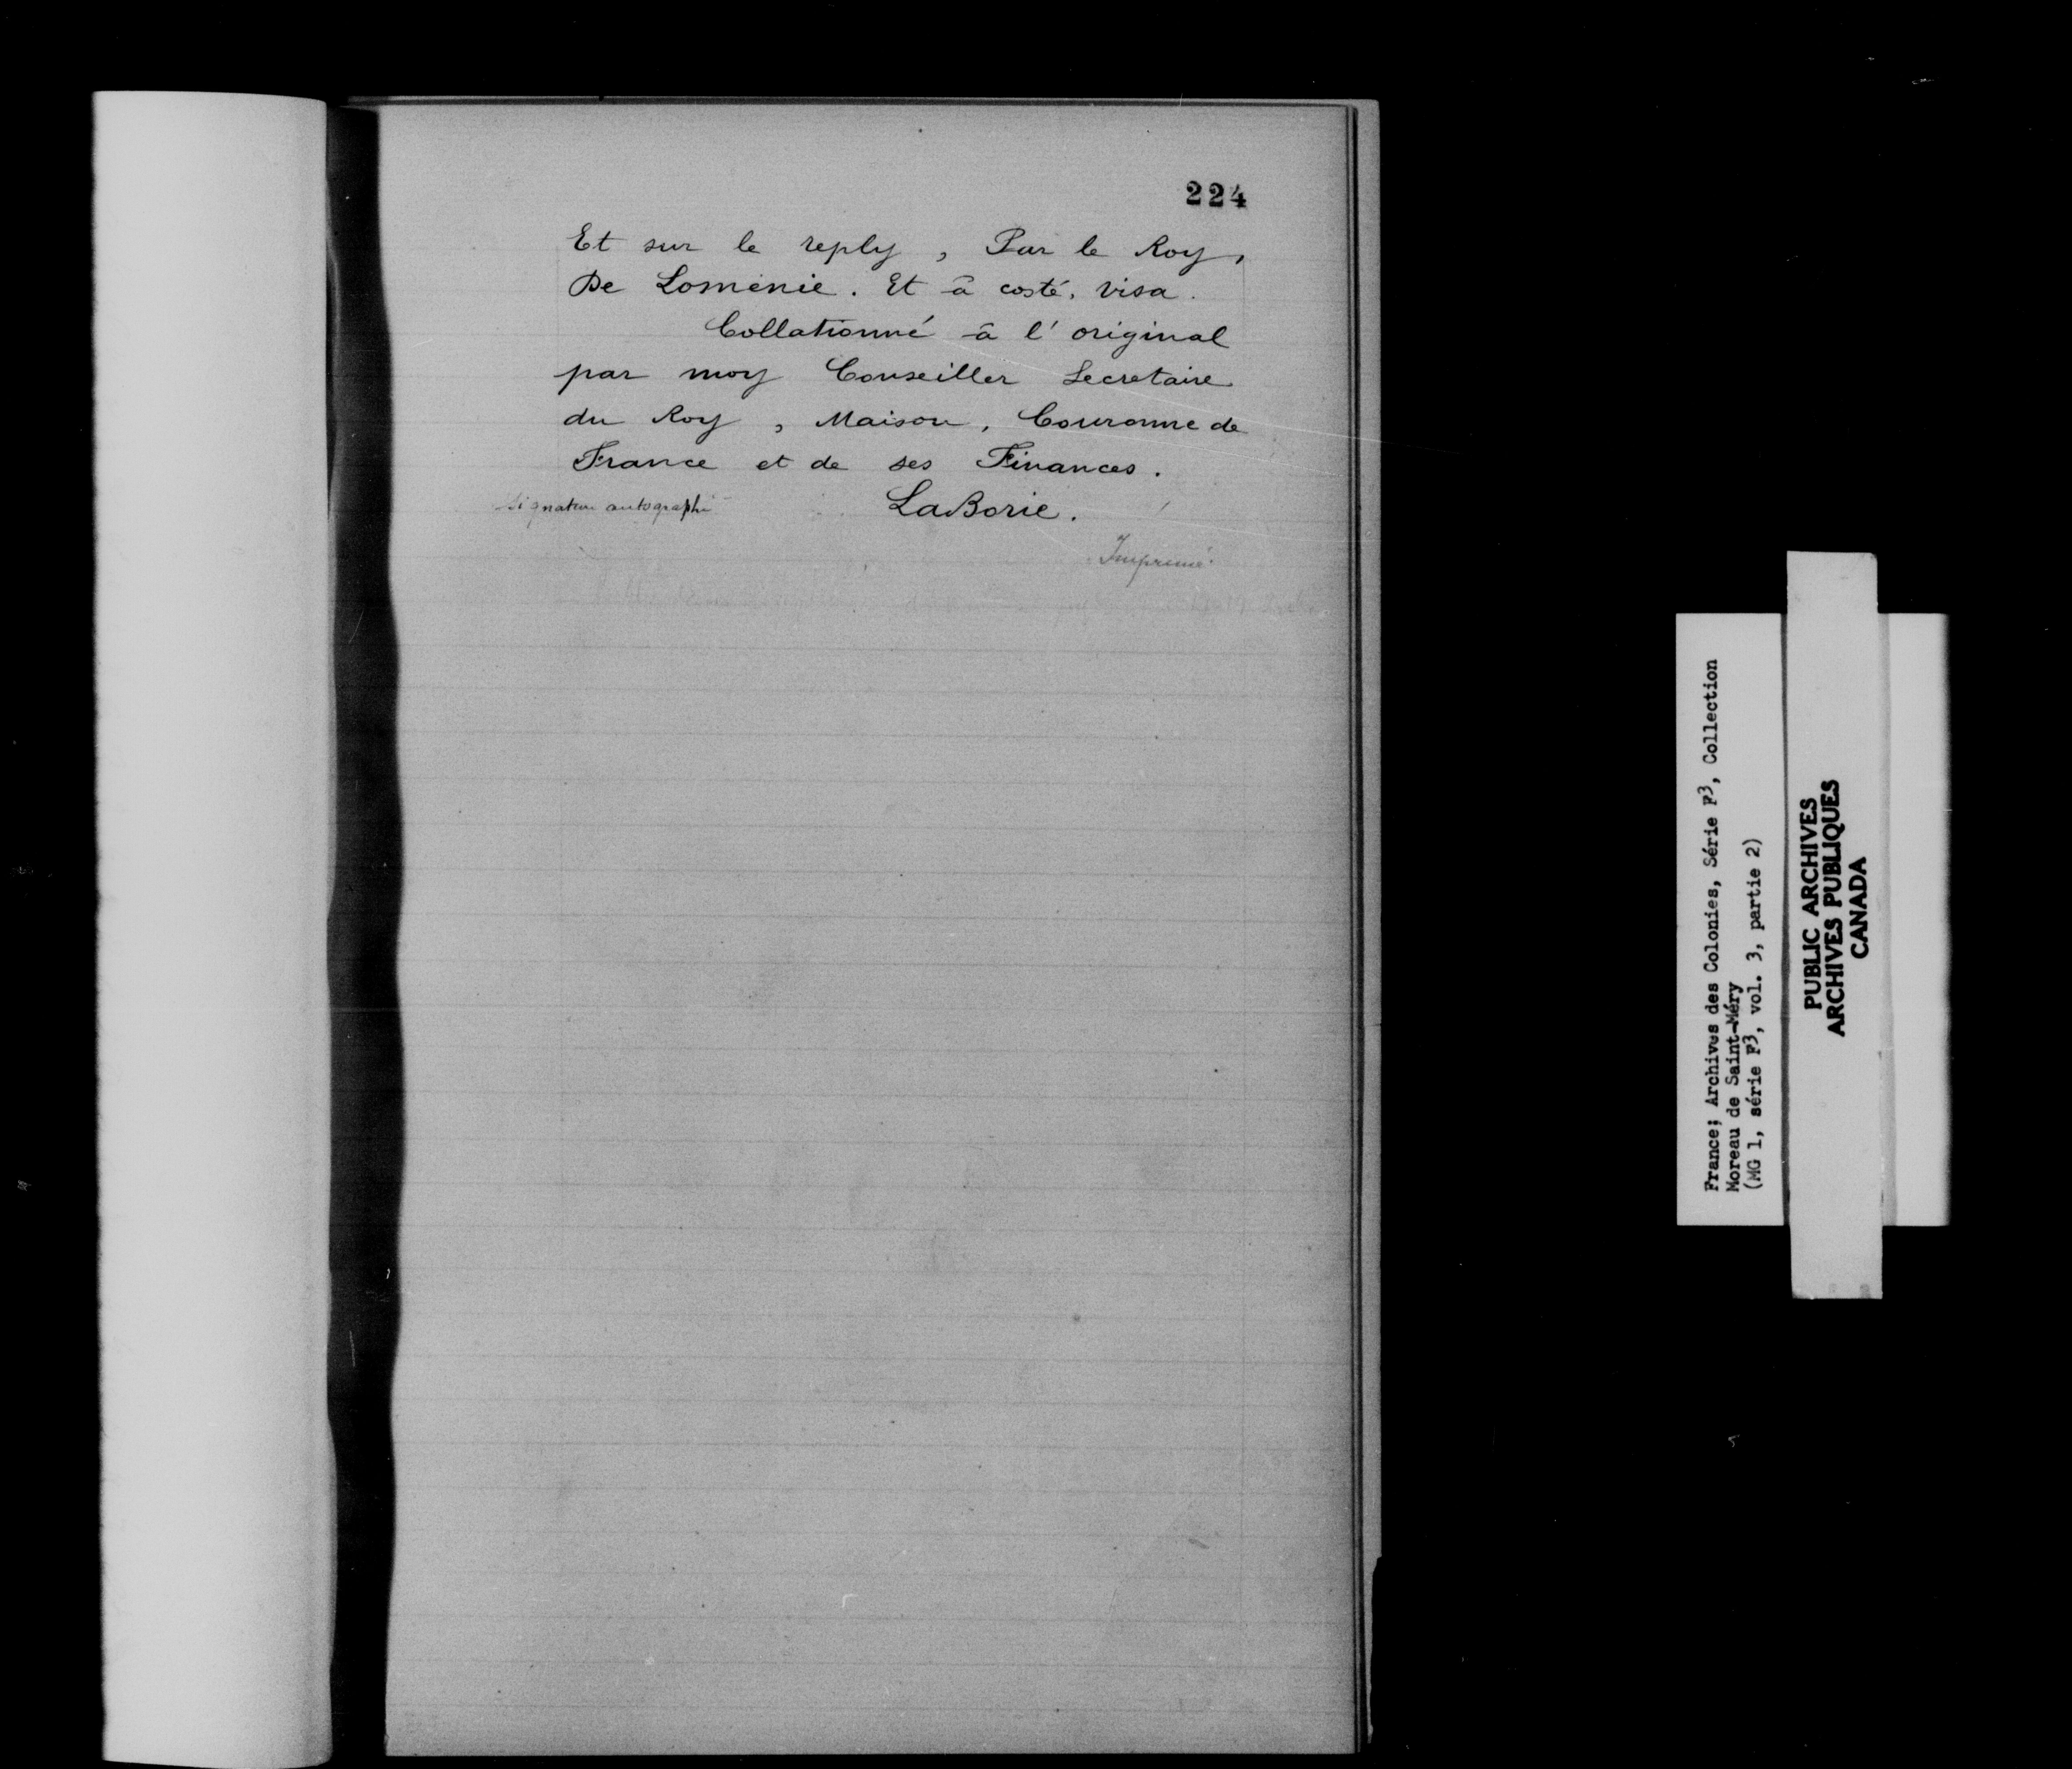 224
Et sur le reply, Par le Roy,
De Loménie. Et à costé, visa.
Collationné à l'original
par moy Conseiller Secretaire
du Roy, Maison, Couronne de
France et de ses Finances.
signature autographe LaBorie.
Imprimé.
France; Archives des Colonies, Série F3, Collection
Moreau de Saint-Méry
(MG 1, série F3, vol. 3, partie 2)
PUBLIC ARCHIVES
ARCHIVES PUBLIQUES
CANADA